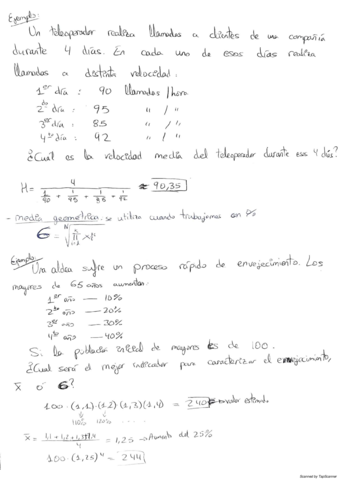 Ejemplo:
Un teleoperador realiza llamadas a clientes de una compañía
durante 4 días. En cada uno de esos días realiza
llamadas a distinta velocidad.
1er día : 90 llamadas/hora
2do día : 95 " / "
3er día : 85 " / "
4to día : 92 " / "
¿Cuál es la velocidad media del teleoperador durante esos 4 días?
H = 4 / (1/90 + 1/95 + 1/85 + 1/92) ≈ 90,35
- media geométrica: se utiliza cuando trabajamos en %
G =
Ejemplo:
Una aldea sufre un proceso rápido de envejecimiento. Los
mayores de 65 años aumentan:
1er año — 10%
2do año — 20%
3er año — 30%
4to año — 40%
Si la población inicial de mayores es de 100.
¿Cual será el mejor indicador para caracterizar el envejecimiento,
x̄ ó G?
100 · (1,1) · (1,2) (1,3) (1,4) = 240
x̄ = = 1,25 → Aumento del 25%
100 · (1,25)⁴ = 244
Scanned by TapScanner